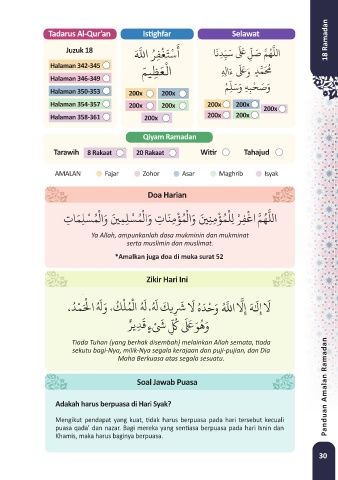 Tadarus Al-Qur'an
Istighfar
Selawat
Juzuk 18
Halaman 342-345
Halaman 346-349
Halaman 350-353
Halaman 354-357
Halaman 358-361
أَسْتَغْفِرُ اللَّهَ
الْعَظِيمَ
200x 200x
200x 200x
200x
اللَّهُمَّ صَلِّ عَلَىٰ سَيِّدِنَا
مُحَمَّدٍ وَعَلَىٰ آلِهِ
وَصَحْبِهِ وَسَلِّمْ
200x 200x
200x
200x 200x
Qiyam Ramadan
Tarawih 8 Rakaat 20 Rakaat Witir Tahajud
AMALAN Fajar Zohor Asar Maghrib Isyak
Doa Harian
اللَّهُمَّ اغْفِرْ لِلْمُؤْمِنِينَ وَالْمُؤْمِنَاتِ وَالْمُسْلِمِينَ وَالْمُسْلِمَاتِ
Ya Allah, ampunkanlah dosa mukminin dan mukminat
serta muslimin dan muslimat.
*Amalkan juga doa di muka surat 52
Zikir Hari Ini
لَا إِلَـٰهَ إِلَّا اللَّهُ وَحْدَهُ لَا شَرِيكَ لَهُ، لَهُ الْمُلْكُ، وَلَهُ الْحَمْدُ،
وَهُوَ عَلَىٰ كُلِّ شَيْءٍ قَدِيرٌ
Tiada Tuhan (yang berhak disembah) melainkan Allah semata, tiada
sekutu bagi-Nya, milik-Nya segala kerajaan dan puji-pujian, dan Dia
Maha Berkuasa atas segala sesuatu.
Soal Jawab Puasa
Adakah harus berpuasa di Hari Syak?
Mengikut pendapat yang kuat, tidak harus berpuasa pada hari tersebut kecuali
puasa qada' dan nazar. Bagi mereka yang sentiasa berpuasa pada hari Isnin dan
Khamis, maka harus baginya berpuasa.
18 Ramadan
Panduan Amalan Ramadan
30